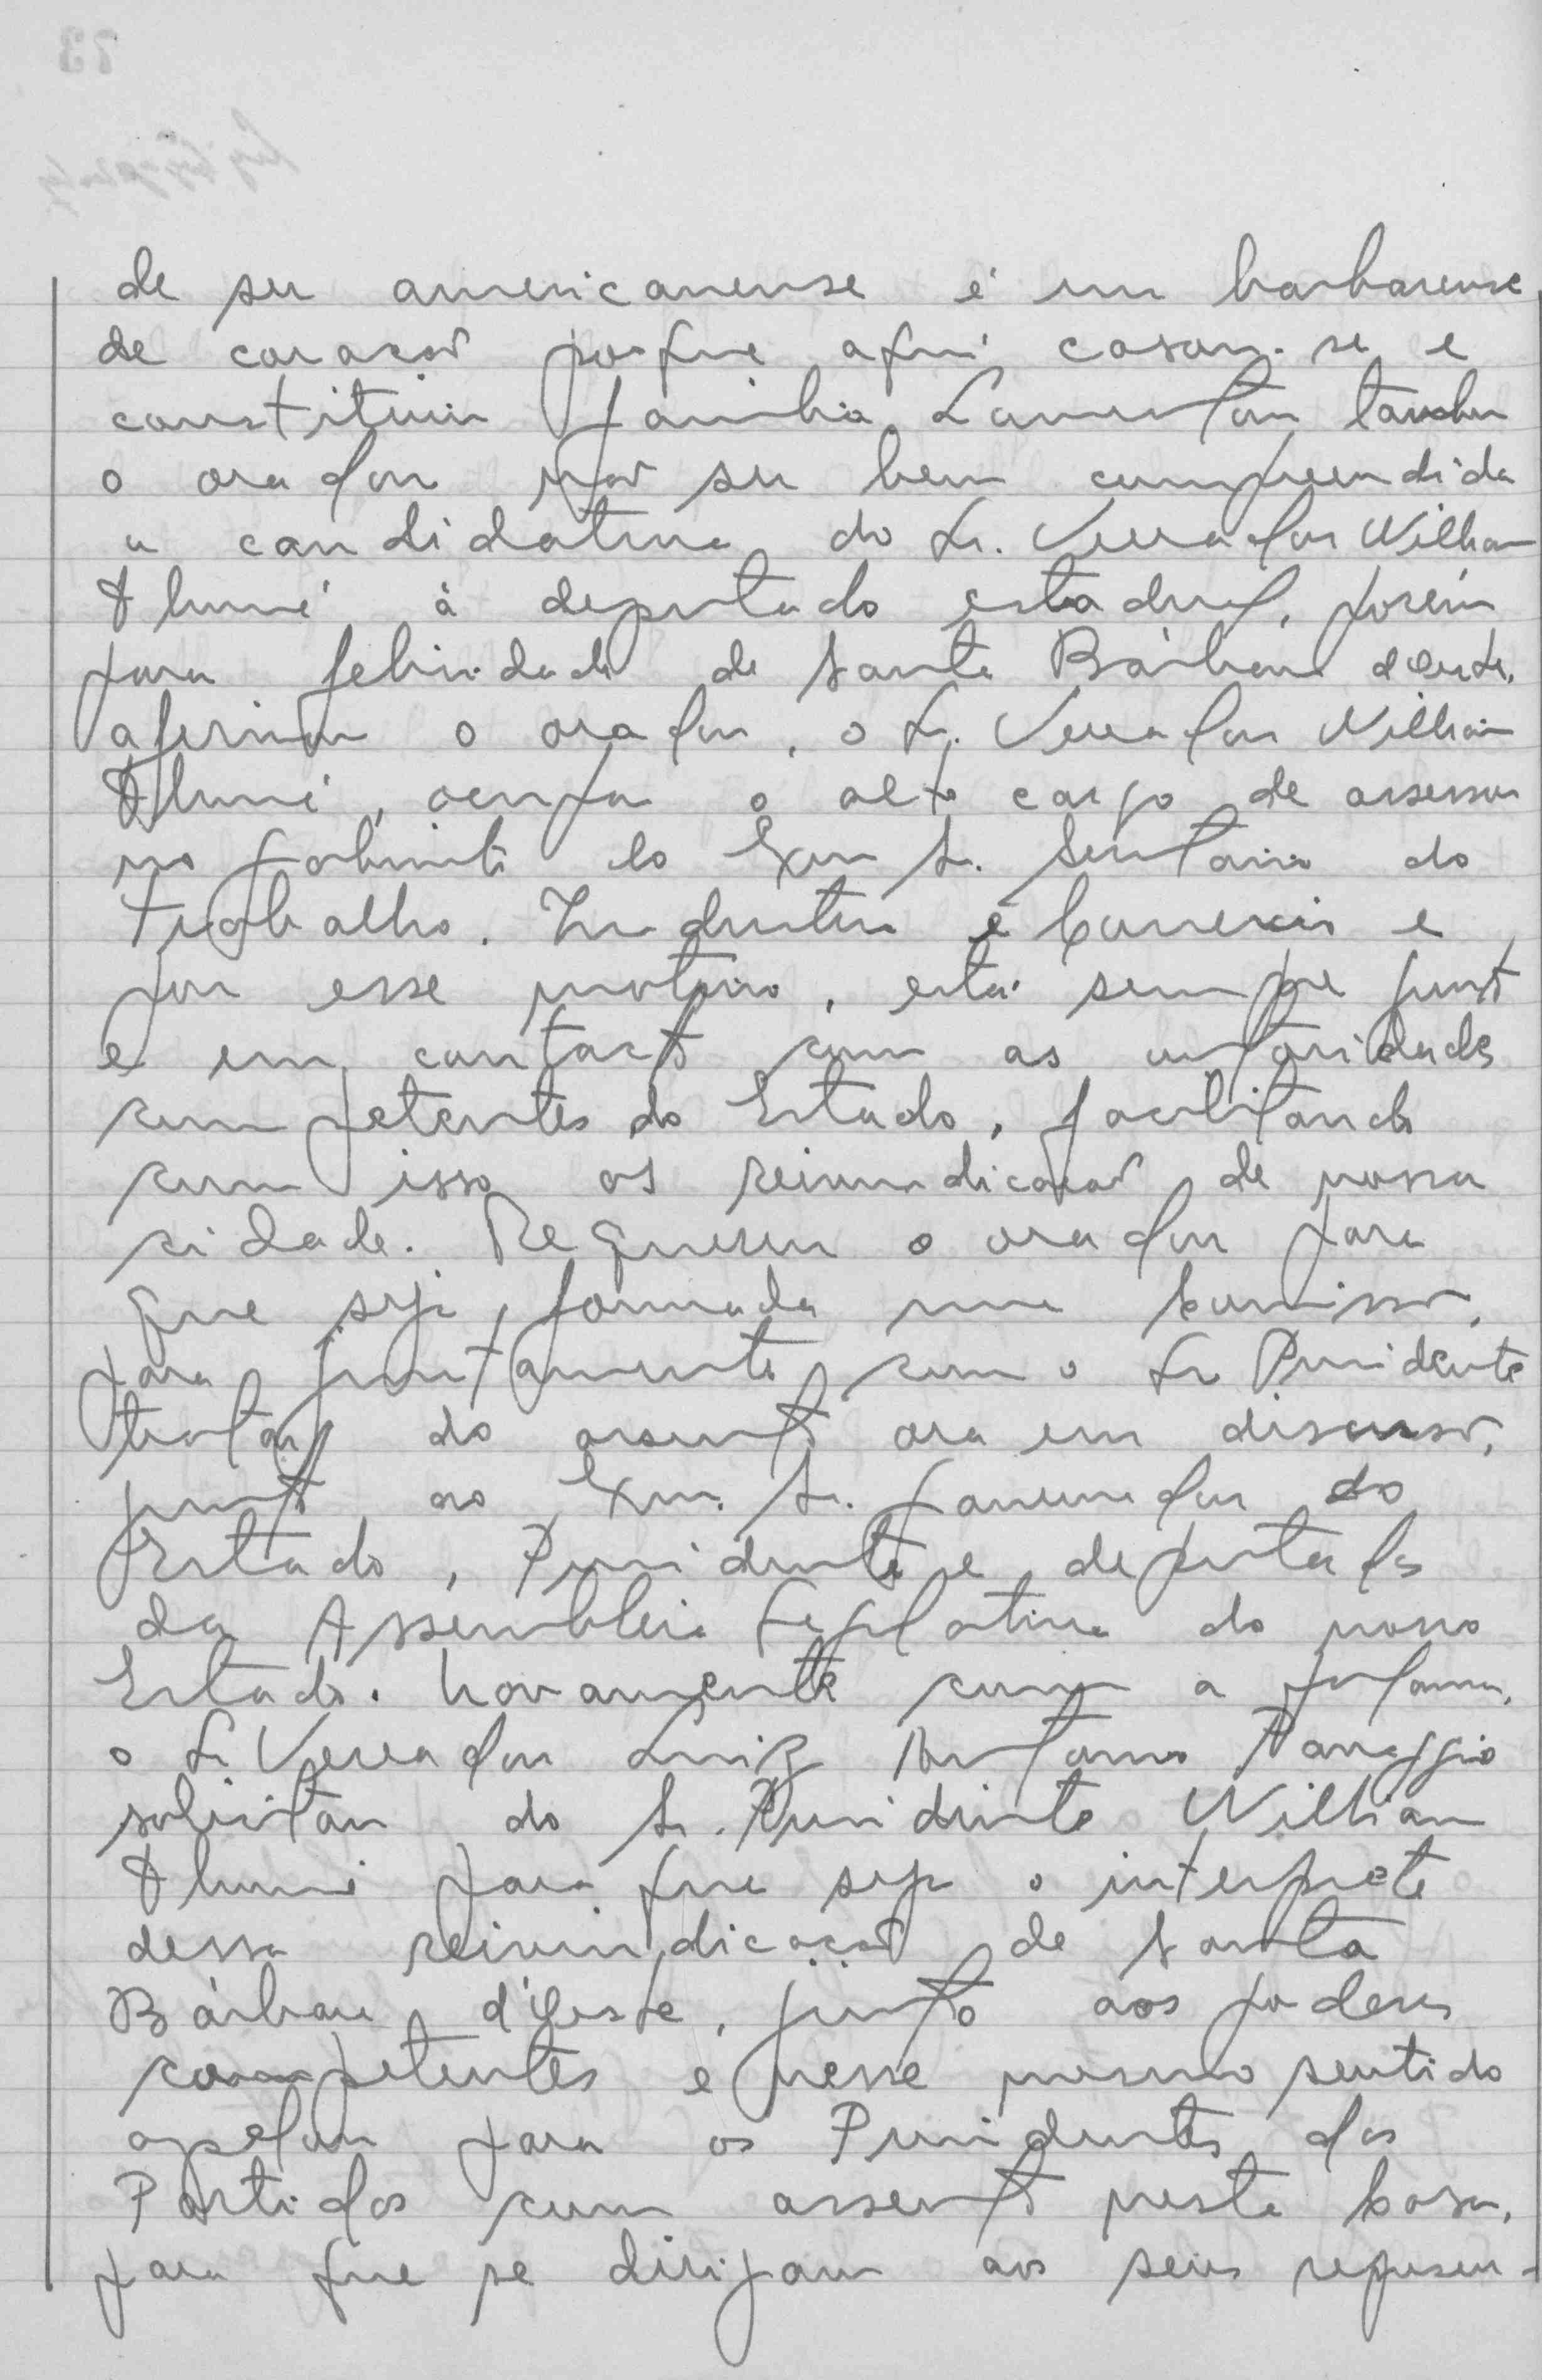 de ser americanense é um barbarense
de coração porque aqui casou-se e
constituiu família. Lamentou também
o orador não ser bem compreendida
a candidatura do Sr. Vereador Willian
à deputado estadual, porém
para felicidade de Santa Bárbara d'Oeste,
afirmou o orador, o Sr. Vereador Willian
ocupa o alto cargo de assessor
no gabinete do Exmo Sr. Secretario do
Trabalho, Industria e Comercio e
por esse motivo, está sempre junto
e em contacto com as autoridades
competentes do Estado, facilitando
com isso as reivindicação de nossa
cidade. Requereu o orador para
que seja formada uma Comissão,
para juntamente com o Sr Presidente
tratar do assunto ora em discussão,
junto ao Exmo. Sr. Governador do
Estado, Presidente e deputados
da Assembleia Legislativa do nosso
Estado. Novamente com a palavra,
o Sr Vereador Luiz Antonio Panaggio
solicitou do Sr. Presidente Willian
para que seja o interprete
dessa reivindicação de Santa
Bárbara d'Oeste, junto aos poderes
competentes e nesse mesmo sentido
apelou para os Presidentes dos
Partidos com assento nesta Casa,
para que se dirijam aos seus represen-